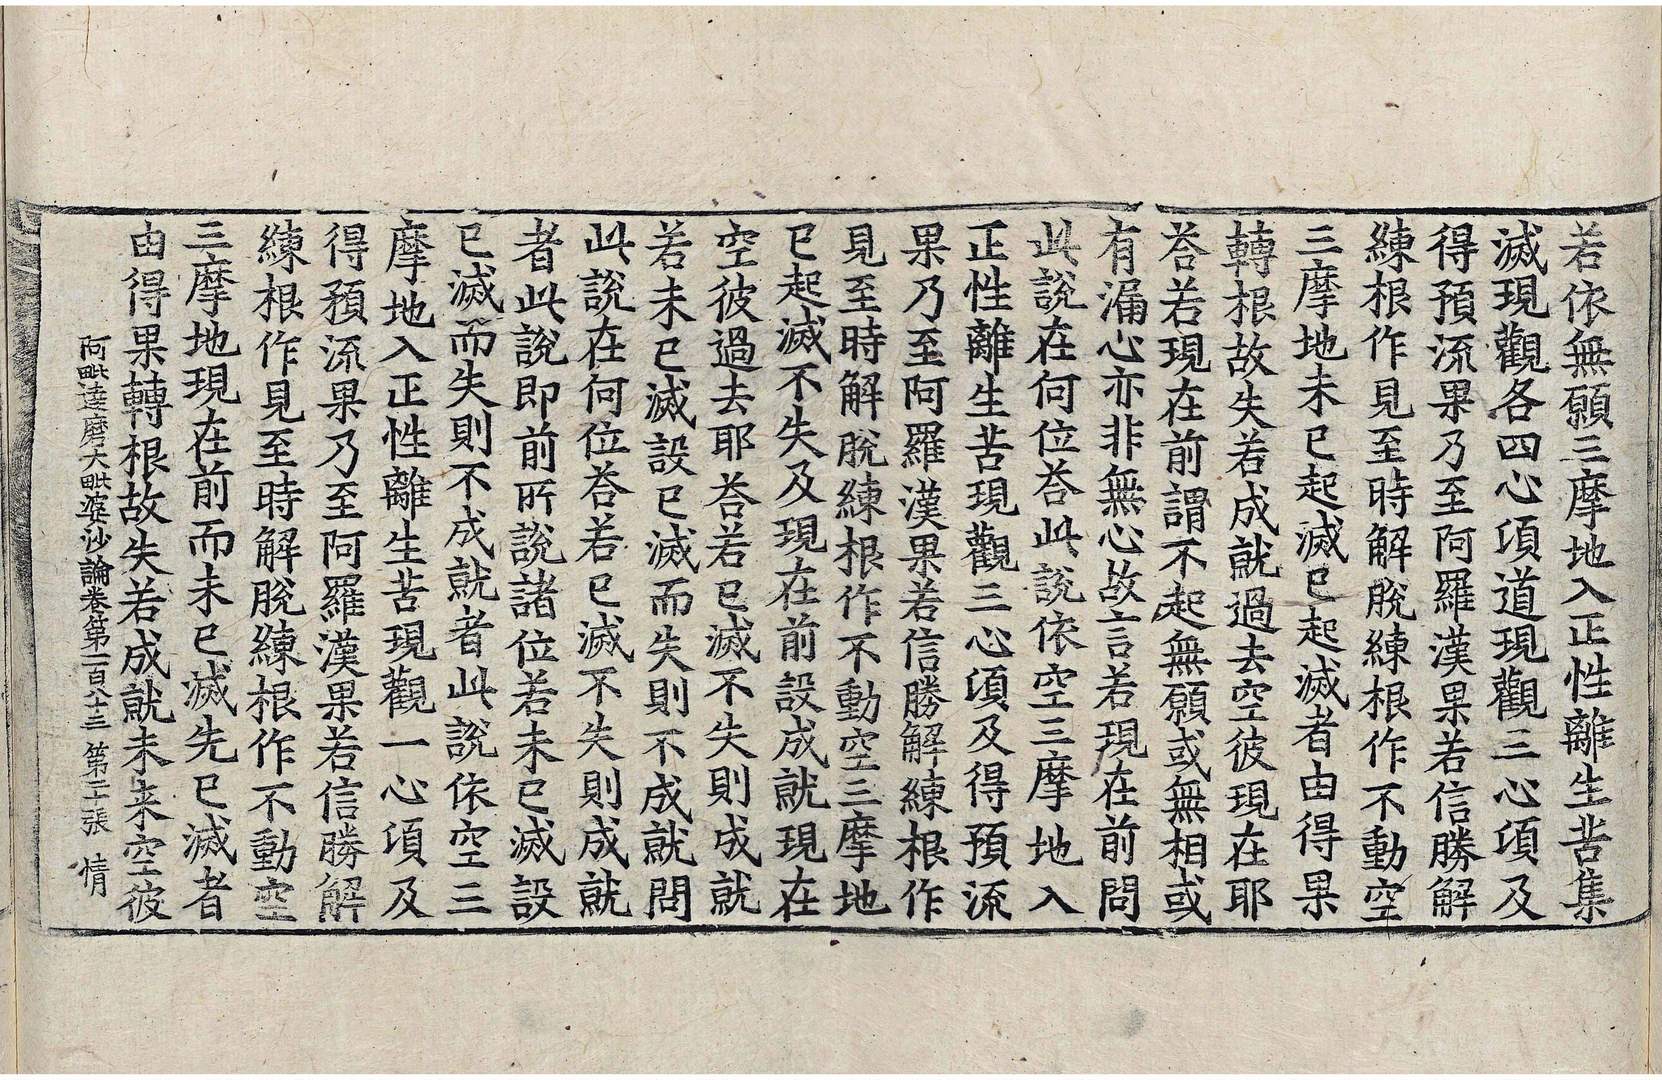 若依無願三摩地入正性離生苦集
滅現觀各四心頃道現觀三心頃及
得預流果乃至阿羅漢果若信勝解
練根作見至時解脫練根作不動空
三摩地未已起滅已起滅者由得果
轉根故失若成就過去空彼現在耶
荅若現在前謂不起無願或無相或
有漏心亦非無心故言若現在前問
此說在何位荅此說依空三摩地入
正性離生苦現觀三心頃及得預流
果乃至阿羅漢果若信勝解練根作
見至時解脫練根作不動空三摩地
已起滅不失及現在前設成就現在
空彼過去耶荅若已滅不失則成就
若未已滅設已滅而失則不成就問
此說在何位荅若已滅不失則成就
者此說即前所說諸位若未已滅設
已滅而失則不成就者此說依空三
摩地入正性離生苦現觀一心頃及
得預流果乃至阿羅漢果若信勝解
練根作見至時解脫練根作不動空
三摩地現在前而未已滅先已滅者
由得果轉根故失若成就未來空彼
阿毗達磨大毗婆沙論卷第一百八十三 第二十張 情